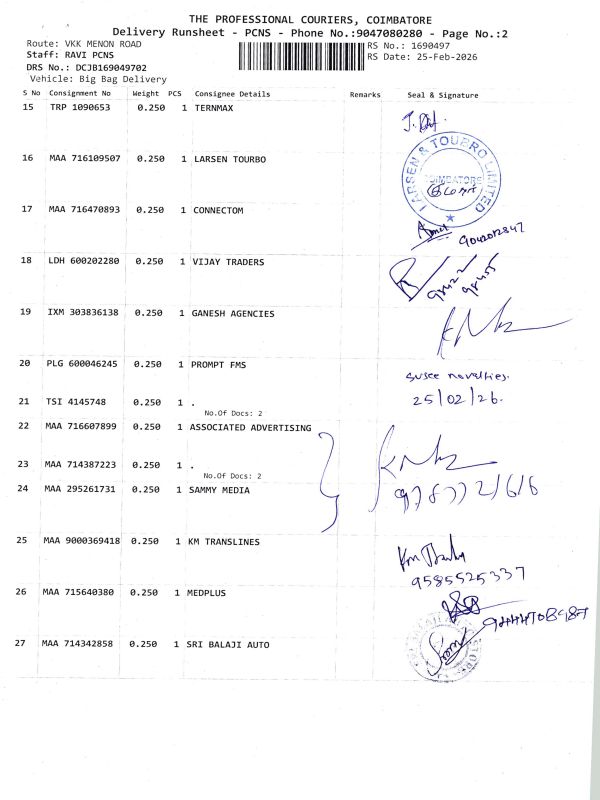 THE PROFESSIONAL COURIERS, COIMBATORE
Delivery Runsheet - PCNS - Phone No.:9047080280 - Page No.:2
Route: VKK MENON ROAD
RS No.: 1690497
Staff: RAVI PCNS
RS Date: 25-Feb-2026
DRS No.: DCJB169049702
Vehicle: Big Bag Delivery
S No Consignment No Weight PCS Consignee Details Remarks Seal & Signature
15 TRP 1090653 0.250 1 TERNMAX
16 MAA 716109507 0.250 1 LARSEN TOURBO
LARSEN & TOUBRO LIMITED
COIMBATORE
17 MAA 716470893 0.250 1 CONNECTOM
18 LDH 600202280 0.250 1 VIJAY TRADERS
98422
98455
19 IXM 303836138 0.250 1 GANESH AGENCIES
20 PLG 600046245 0.250 1 PROMPT FMS
Susee novelties.
21 TSI 4145748 0.250 1 .
25/02/26.
No.Of Docs: 2
22 MAA 716607899 0.250 1 ASSOCIATED ADVERTISING
23 MAA 714387223 0.250 1 .
No.Of Docs: 2
24 MAA 295261731 0.250 1 SAMMY MEDIA
25 MAA 9000369418 0.250 1 KM TRANSLINES
9585525337
26 MAA 715640380 0.250 1 MEDPLUS
27 MAA 714342858 0.250 1 SRI BALAJI AUTO